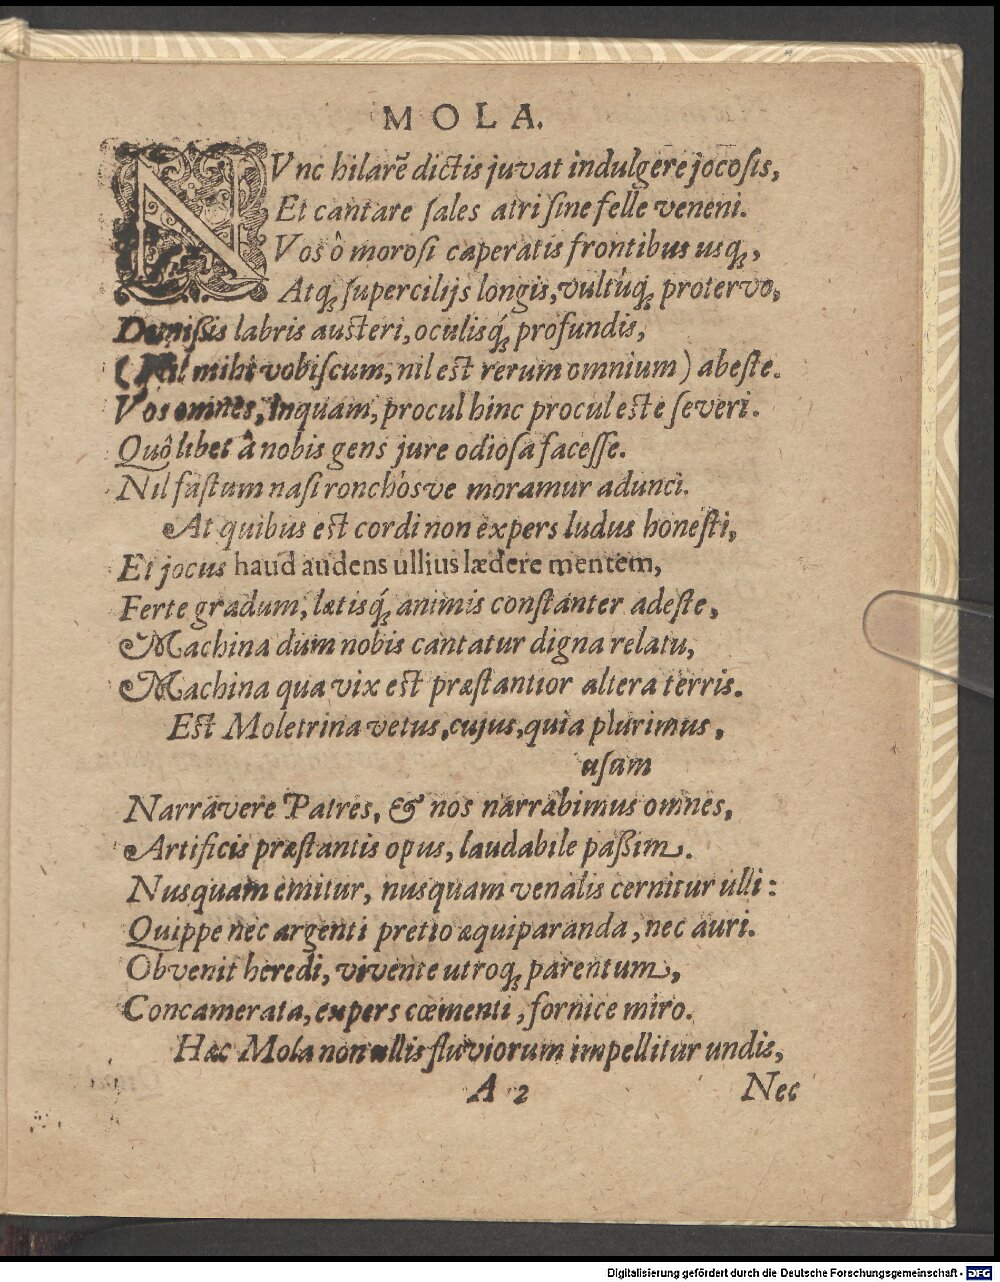 MOLA.
NVnc hilarẽ dictis juvat indulgere jocosis,
Et cantare sales atri sine felle veneni.
Vos ô morosi caperatis frontibus usq́;,
Atq́; supercilijs longis, vultúq́; protervo,
Demissis labris austeri, oculisq́; profundis,
(Nil mihi vobiscum, nil est rerum omnium) abeste.
Vos omnes, inquam, procul hinc procul este severi.
Quô libet â nobis gens jure odiosa facesse.
Nil fastum nasi ronchósve moramur adunci.
At quibus est cordi non expers ludus honesti,
Et jocus haud audens ullius lædere mentem,
Ferte gradum, lætisq́; animis constanter adeste,
Machina dum nobis cantatur digna relatu,
Machina qua vix est præstantior altera terris.
Est Moletrina vetus, cujus, quia plurimus,
usam
Narravere Patres, & nos narrabimus omnes,
Artificis præstantis opus, laudabile passim.
Nusquam emitur, nusquam venalis cernitur ulli:
Quippe nec argenti pretio æquiparanda, nec auri.
Obvenit heredi, vivente utroq́; parentum,
Concamerata, expers cœmenti, fornice miro.
Hæc Mola non ullis fluviorum impellitur undis,
A 2 Nec
Digitalisierung gefördert durch die Deutsche Forschungsgemeinschaft - DFG